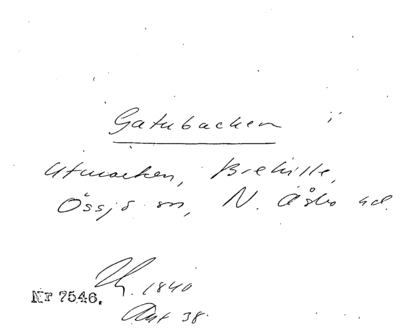 Gatubacken
Utmarken, Brehille,
Össjö sn, N. Åsbo hd.
1840
Nr 7546.
Ant 38.